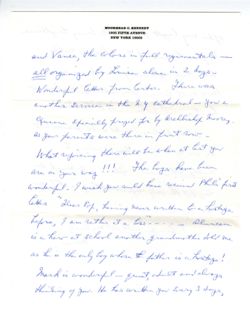 MOORHEAD C. KENNEDY
1165 FIFTH AVENUE
NEW YORK 10029
and Vance, the colors in full regimentals –
all organized by Louisa alone in 2 days.
Wonderful letter from Carter. There was
another service in the N.Y. cathedral – you &
specially prayed for by Archbishop
as your parents were there in front row.
What rejoicing there will be when at last you
are on your way!!! The boys have been
wonderful. I wish you could have seen Phil's first
letter "Dear Pop, having never written to a hostage
before, I am rather at a loss" .....
is a hero at school another grandmother told me
as he is the only boy whose father is a hostage!
Mark is wonderful – quiet, and always
thinking of you. He has written you every 3 days,